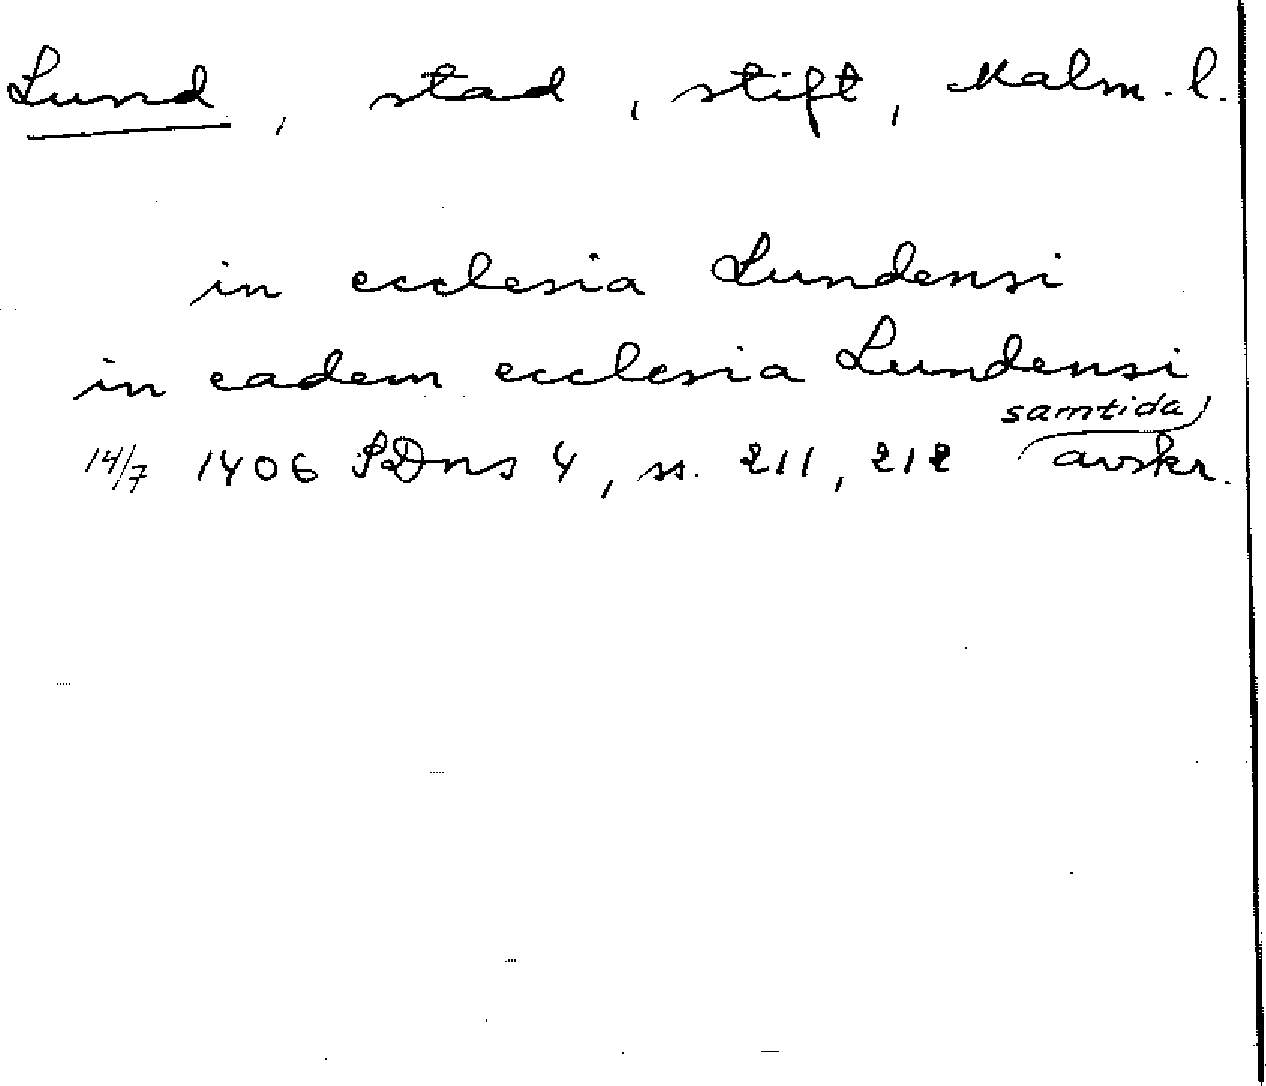 Lund, stad, stift, Malm. l.
in ecclesia Lundensi
in eadem ecclesia Lundensi
samtida
14/7 1406 SDns 4, ss. 211, 212 avskr.